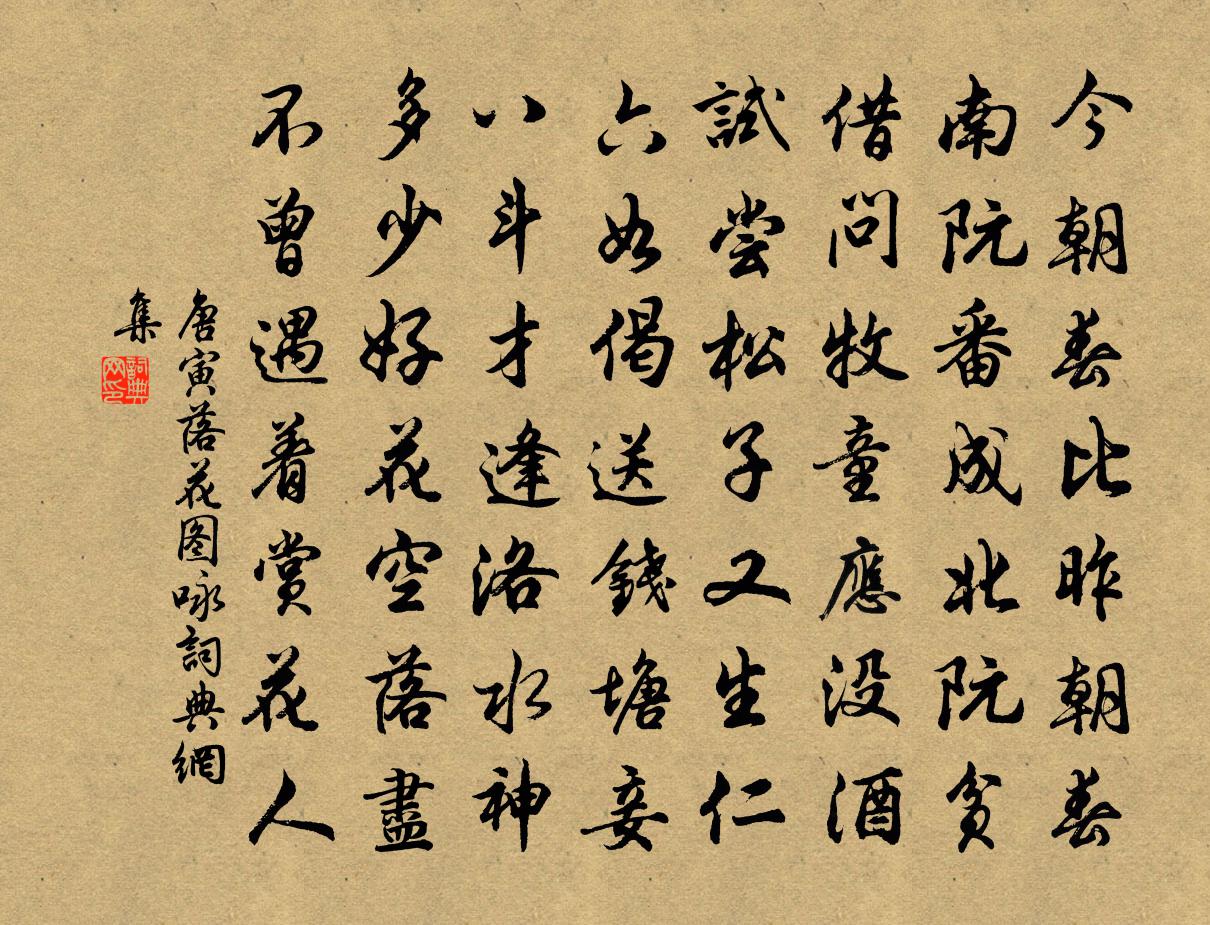 今朝春比昨朝春
南阮番成北阮貧
借問牧童應没酒
試嘗松子又生仁
六如偈送錢塘妾
八斗才逢洛水神
多少好花空落盡
不曾遇着賞花人
唐寅落花图咏詞典網
集
詞典
网印